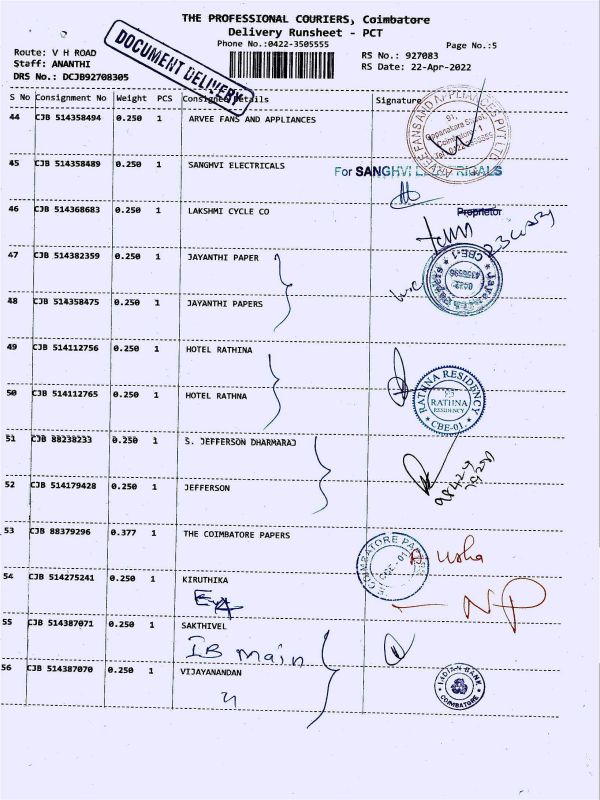 THE PROFESSIONAL COURIERS, Coimbatore
Delivery Runsheet - PCT
Phone No.:0422-3505555
Page No.:5
Route: V H ROAD
Staff: ANANTHI
DRS No.: DCJB92708305
RS No.: 927083
RS Date: 22-Apr-2022
DOCUMENT DELIVERY
S No Consignment No Weight PCS Consignee Details Signature
44 CJB 514358494 0.250 1 ARVEE FANS AND APPLIANCES
ARVEE FANS AND APPLIANCES PVT LTD
45 CJB 514358489 0.250 1 SANGHVI ELECTRICALS
For SANGHVI ELECTRICALS
Proprietor
46 CJB 514368683 0.250 1 LAKSHMI CYCLE CO
47 CJB 514382359 0.250 1 JAYANTHI PAPER
CBE-1
48 CJB 514358475 0.250 1 JAYANTHI PAPERS
49 CJB 514112756 0.250 1 HOTEL RATHINA
50 CJB 514112765 0.250 1 HOTEL RATHNA
RATHNA RESIDENCY
RATHNA
RESIDENCY
CBE-01.
51 CJB 88238233 0.250 1 S. JEFFERSON DHARMARAJ
52 CJB 514179428 0.250 1 JEFFERSON
53 CJB 88379296 0.377 1 THE COIMBATORE PAPERS
CBE-01
Usha
54 CJB 514275241 0.250 1 KIRUTHIKA
NP
55 CJB 514387071 0.250 1 SAKTHIVEL
IB main
56 CJB 514387070 0.250 1 VIJAYANANDAN
INDIAN BANK
COIMBATORE